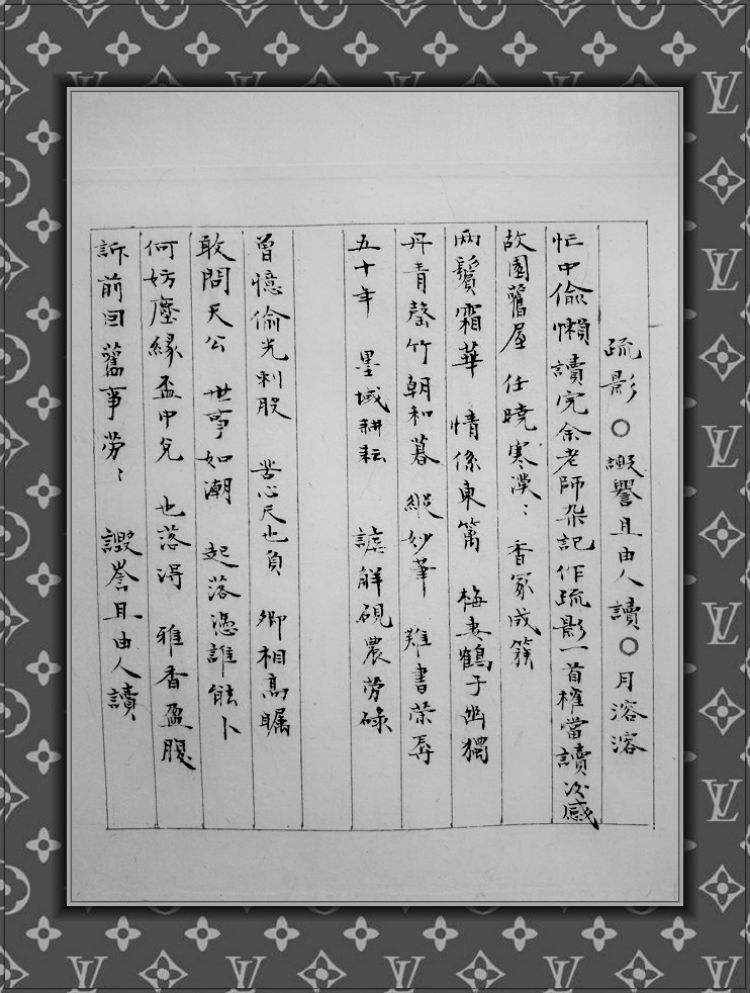 疏影○譭譽且由人讀○月溶溶
忙中偸懶讀完余老師杂記作疏影一首権當讀次感
故園舊屋 任曉寒漠﹕ 香冢成簇
兩鬢霜華 情係東篱 梅妻鶴子幽獨
丹青罄竹朝和暮 縱妙筆 難書荣辱
五十年 墨域耕耘 諕解硯農劳碌
曾憶偷光刺股 苦心尺也負 卿相高瞩
敢問天公 世事如潮 起落憑誰能卜
何妨塵緣盃中兌 也落得 雅香盈腹
訴前回舊事劳﹕ 譭誉且由人讀